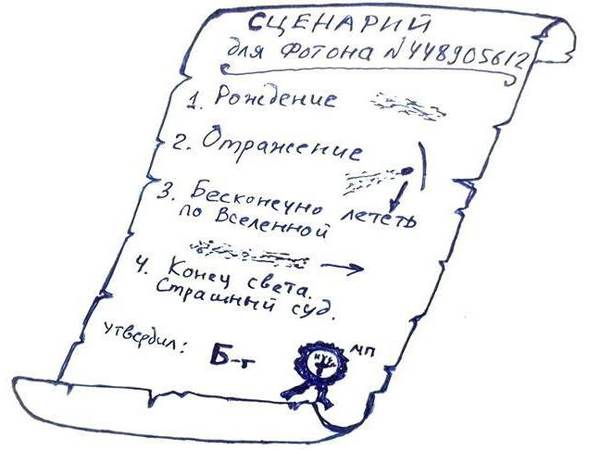 СЦЕНАРИЙ
для Фотона N448905612
1. Рождение
2. Отражение
3. Бесконечно лететь
по Вселенной
4. Конец света.
Страшный суд.
утвердил: Б-г МП